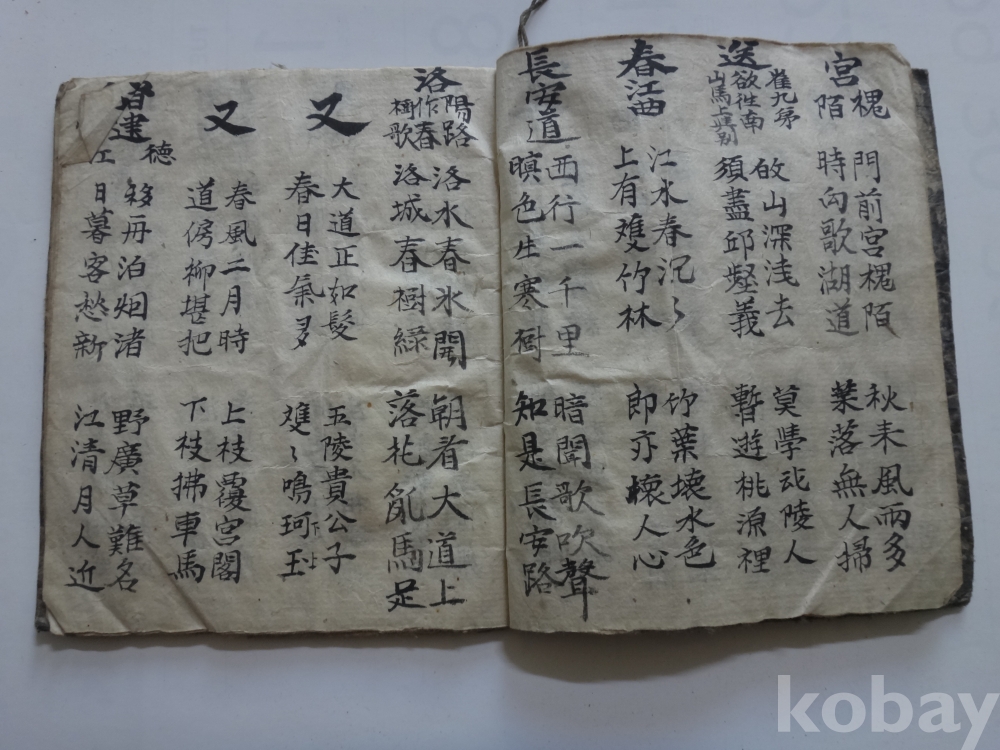 宮槐陌
門前宮槐陌
時向欹湖道
秋来風雨多
葉落無人掃
送崔九弟欲徃南山馬上口号別
山深浅去
須盡邱壑義
莫學武陵人
暫遊桃源裡
春江曲
江水春沉〻
上有雙竹林
竹葉壊水色
郎亦壊人心
長安道
西行一千里
暝色生寒樹
暗聞歌吹聲
知是長安路
洛陽路
作春樹歌
洛水春氷開
洛城春樹綠
朝看大道上
落花亂馬足
又
大道正如髮
春日佳氣多
五陵貴公子
雙〻鳴珂玉
又
春風二月時
道傍柳堪把
上枝覆宮閣
下枝拂車馬
建德江
移舟泊烟渚
日暮客愁新
野廣草難名
江清月人近
kobay